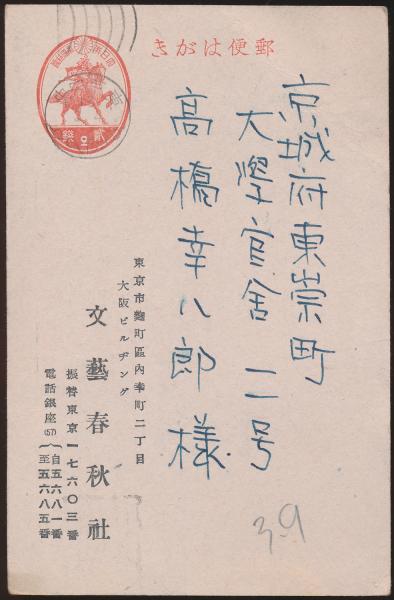 郵便はがき
京城府東崇町
大學官舍 二号
高橋幸八郎様
東京市麴町區內幸町二丁目
大阪ビルヂング
文藝春秋社
振替東京一七六〇三番
電話銀座(57){自五六八一番
至五六八五番
貳錢
39